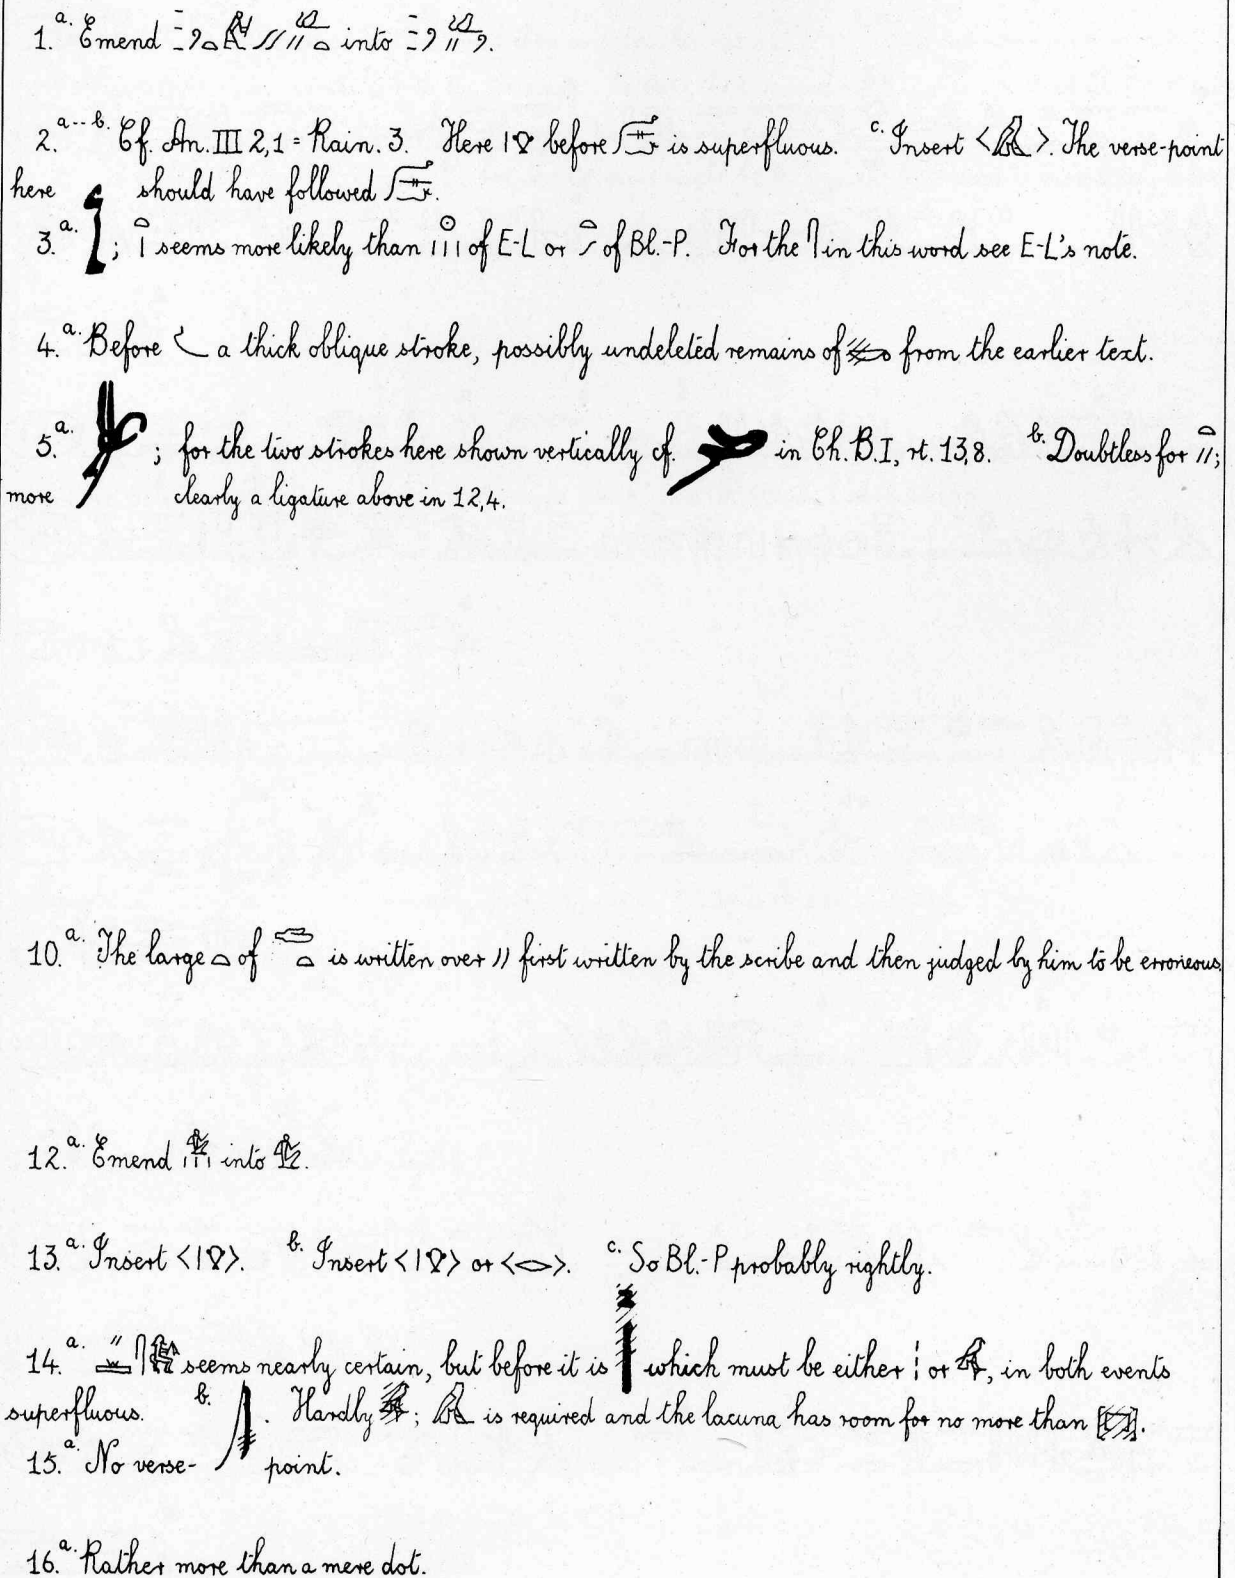 1. a. Emend into
2. a--b. Cf. An. III 2,1 = Rain. 3. Here before is superfluous. c. Insert < >. The verse-point
here should have followed
3. a. ; seems more likely than of E-L or of Bl.-P. For the in this word see E-L's note.
4. a. Before a thick oblique stroke, possibly undeleted remains of from the earlier text.
5. a. ; for the two strokes here shown vertically cf. in Ch. B. I, rt. 13,8. b. Doubtless for ;
more clearly a ligature above in 12,4.
10. a. The large of is written over first written by the scribe and then judged by him to be erroneous.
12. a. Emend into
13. a. Insert < >. b. Insert < > or < >. c. So Bl.-P probably rightly.
14. a. seems nearly certain, but before it is which must be either or , in both events
superfluous. b. . Hardly ; is required and the lacuna has room for no more than
15. a. No verse-point.
16. a. Rather more than a mere dot.